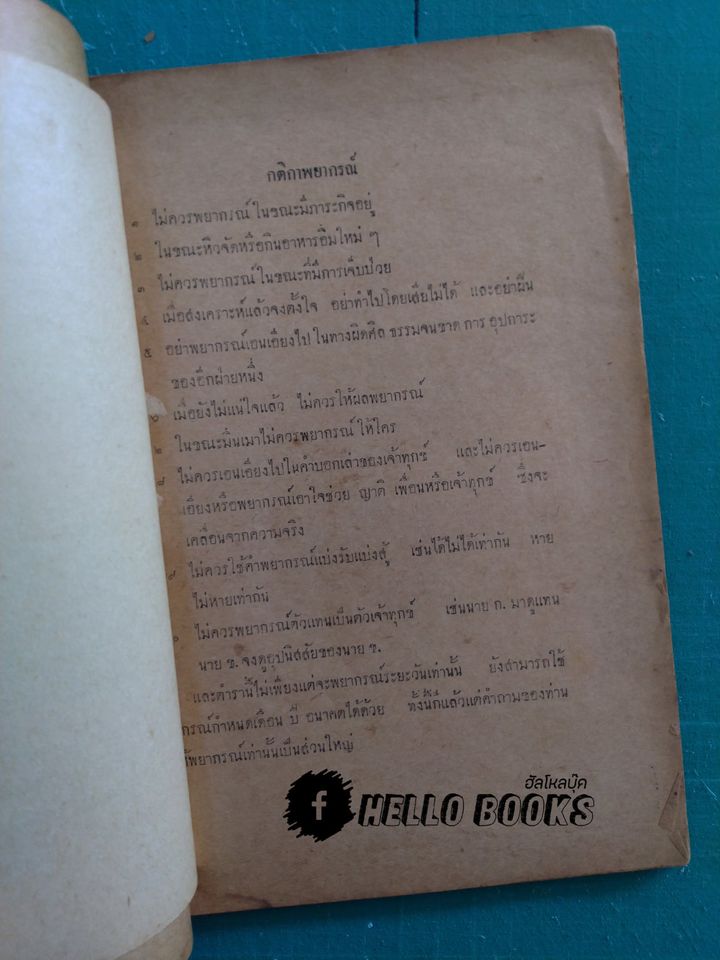 กติกาพยากรณ์
๑ ไม่ควรพยากรณ์ ในขณะมีภาระกิจอยู่
๒ ในขณะหิวจัดหรือกินอาหารอิ่มใหม่ ๆ
๓ ไม่ควรพยากรณ์ในขณะที่มีการเจ็บป่วย
๔ เมื่อสงเคราะห์แล้วจงตั้งใจ อย่าทำไปโดยเสียไม่ได้ และอย่าฝืน
๕ อย่าพยากรณ์เอนเอียงไป ในทางผิดศีล ธรรมจนขาด การ อุปการะ
ของอีกฝ่ายหนึ่ง
๖ เมื่อยังไม่แน่ใจแล้ว ไม่ควรให้ผลพยากรณ์
ในขณะมึนเมาไม่ควรพยากรณ์ ให้ใคร
๘ ไม่ควรเอนเอียงไปในคำบอกเล่าของเจ้าทุกข์ และไม่ควรเอน-
เอียงหรือพยากรณ์เอาใจช่วย ญาติ เพื่อนหรือเจ้าทุกข์ ซึ่งจะ
เคลื่อนจากความจริง
๙ ไม่ควรใช้คำพยากรณ์แบ่งรับแบ่งสู้ เช่นได้ไม่ได้เท่ากัน หาย
ไม่หายเท่ากัน
๐ ไม่ควรพยากรณ์ตัวแทนเป็นตัวเจ้าทุกข์ เช่นนาย ก. มาดูแทน
นาย ข. จงดูอุปนิสสัยของนาย ข.
และตำรานี้ไม่เพียงแต่จะพยากรณ์ระยะวันเท่านั้น ยังสามารถใช้
กรณ์กำหนดเดือน ปี อนาคตได้ด้วย ทั้งนี้ก็แล้วแต่คำถามของท่าน
พยากรณ์เท่านั้นเป็นส่วนใหญ่
ฮัลโหลบุ๊ค
f HELLO BOOKS